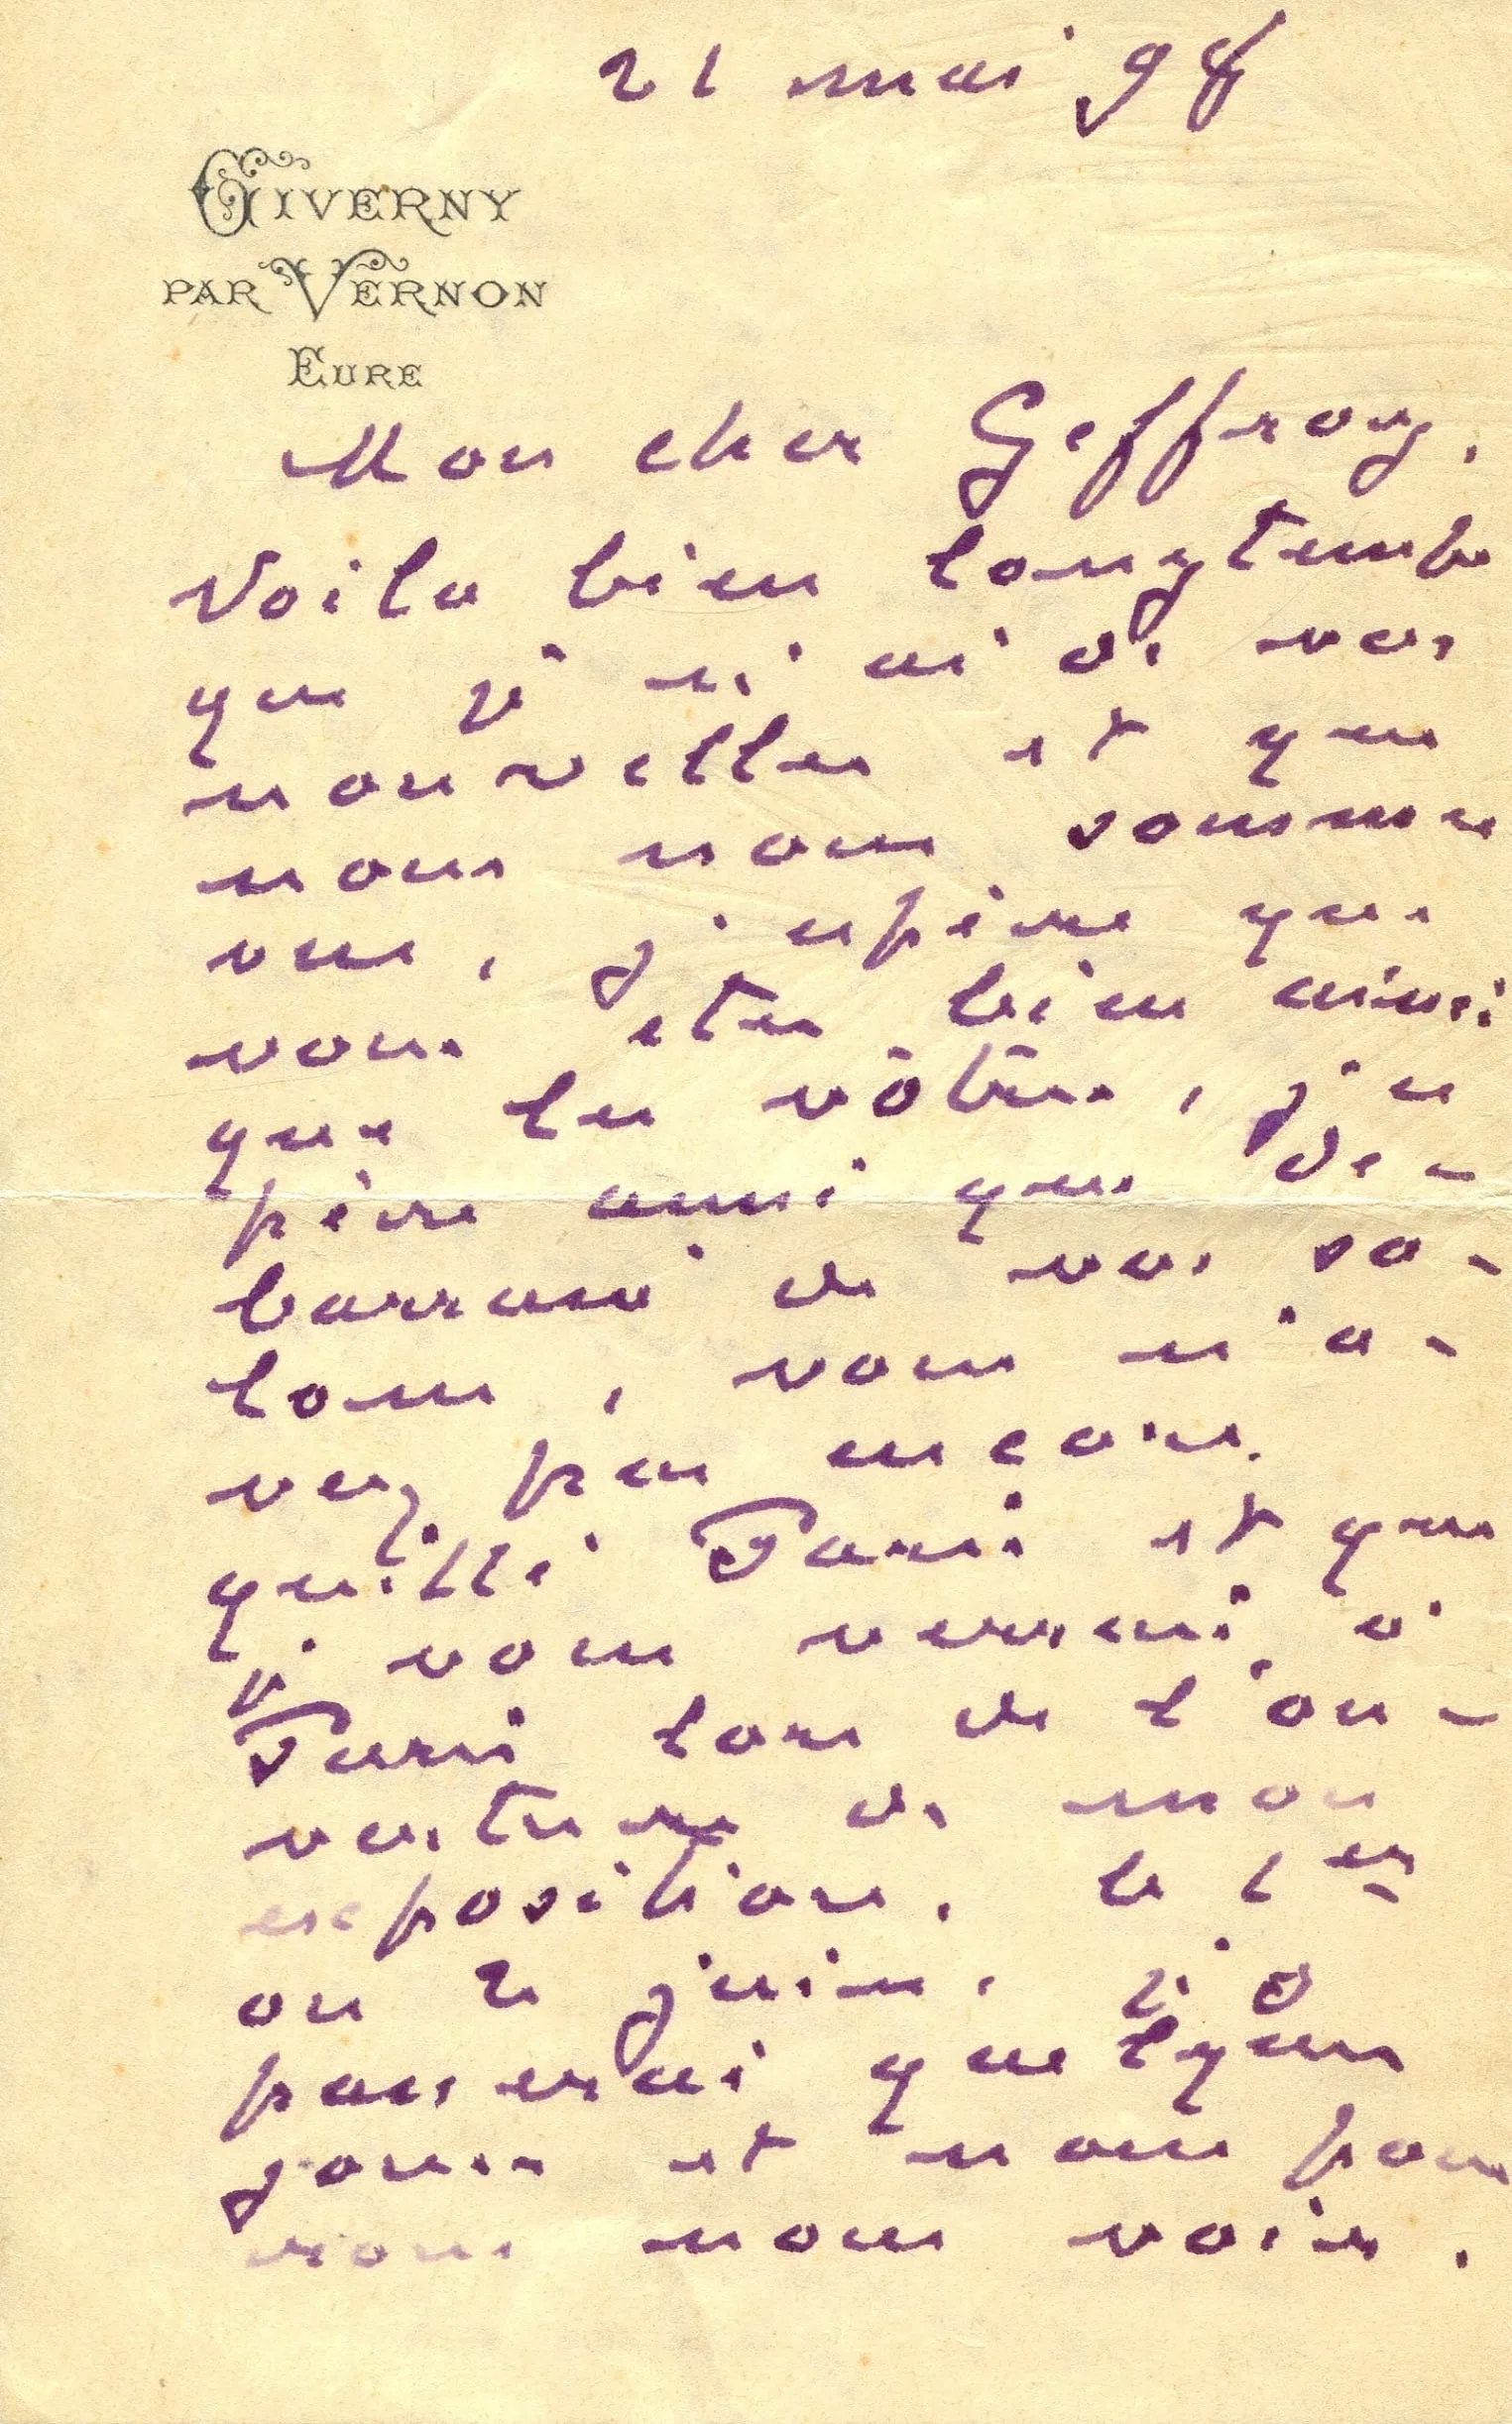 21 mai 98
GIVERNY
PAR VERNON
EURE
Mon cher Geffroy,
Voila bien longtemps
que je n'ai de vos
nouvelles et que
nous nous sommes
vus, j'espère que
vous etes bien ainsi
que les vôtres, j'es
père aussi que dé-
barrassé de vos sa-
lons, vous n'a-
vez pas encore
quitté Paris et que
je vous verrai à
Paris lors de l'ou-
verture de mon
exposition, le 1er
ou 2 juin, j'y
passerai quelques
jours et nous pour
rons nous voir.